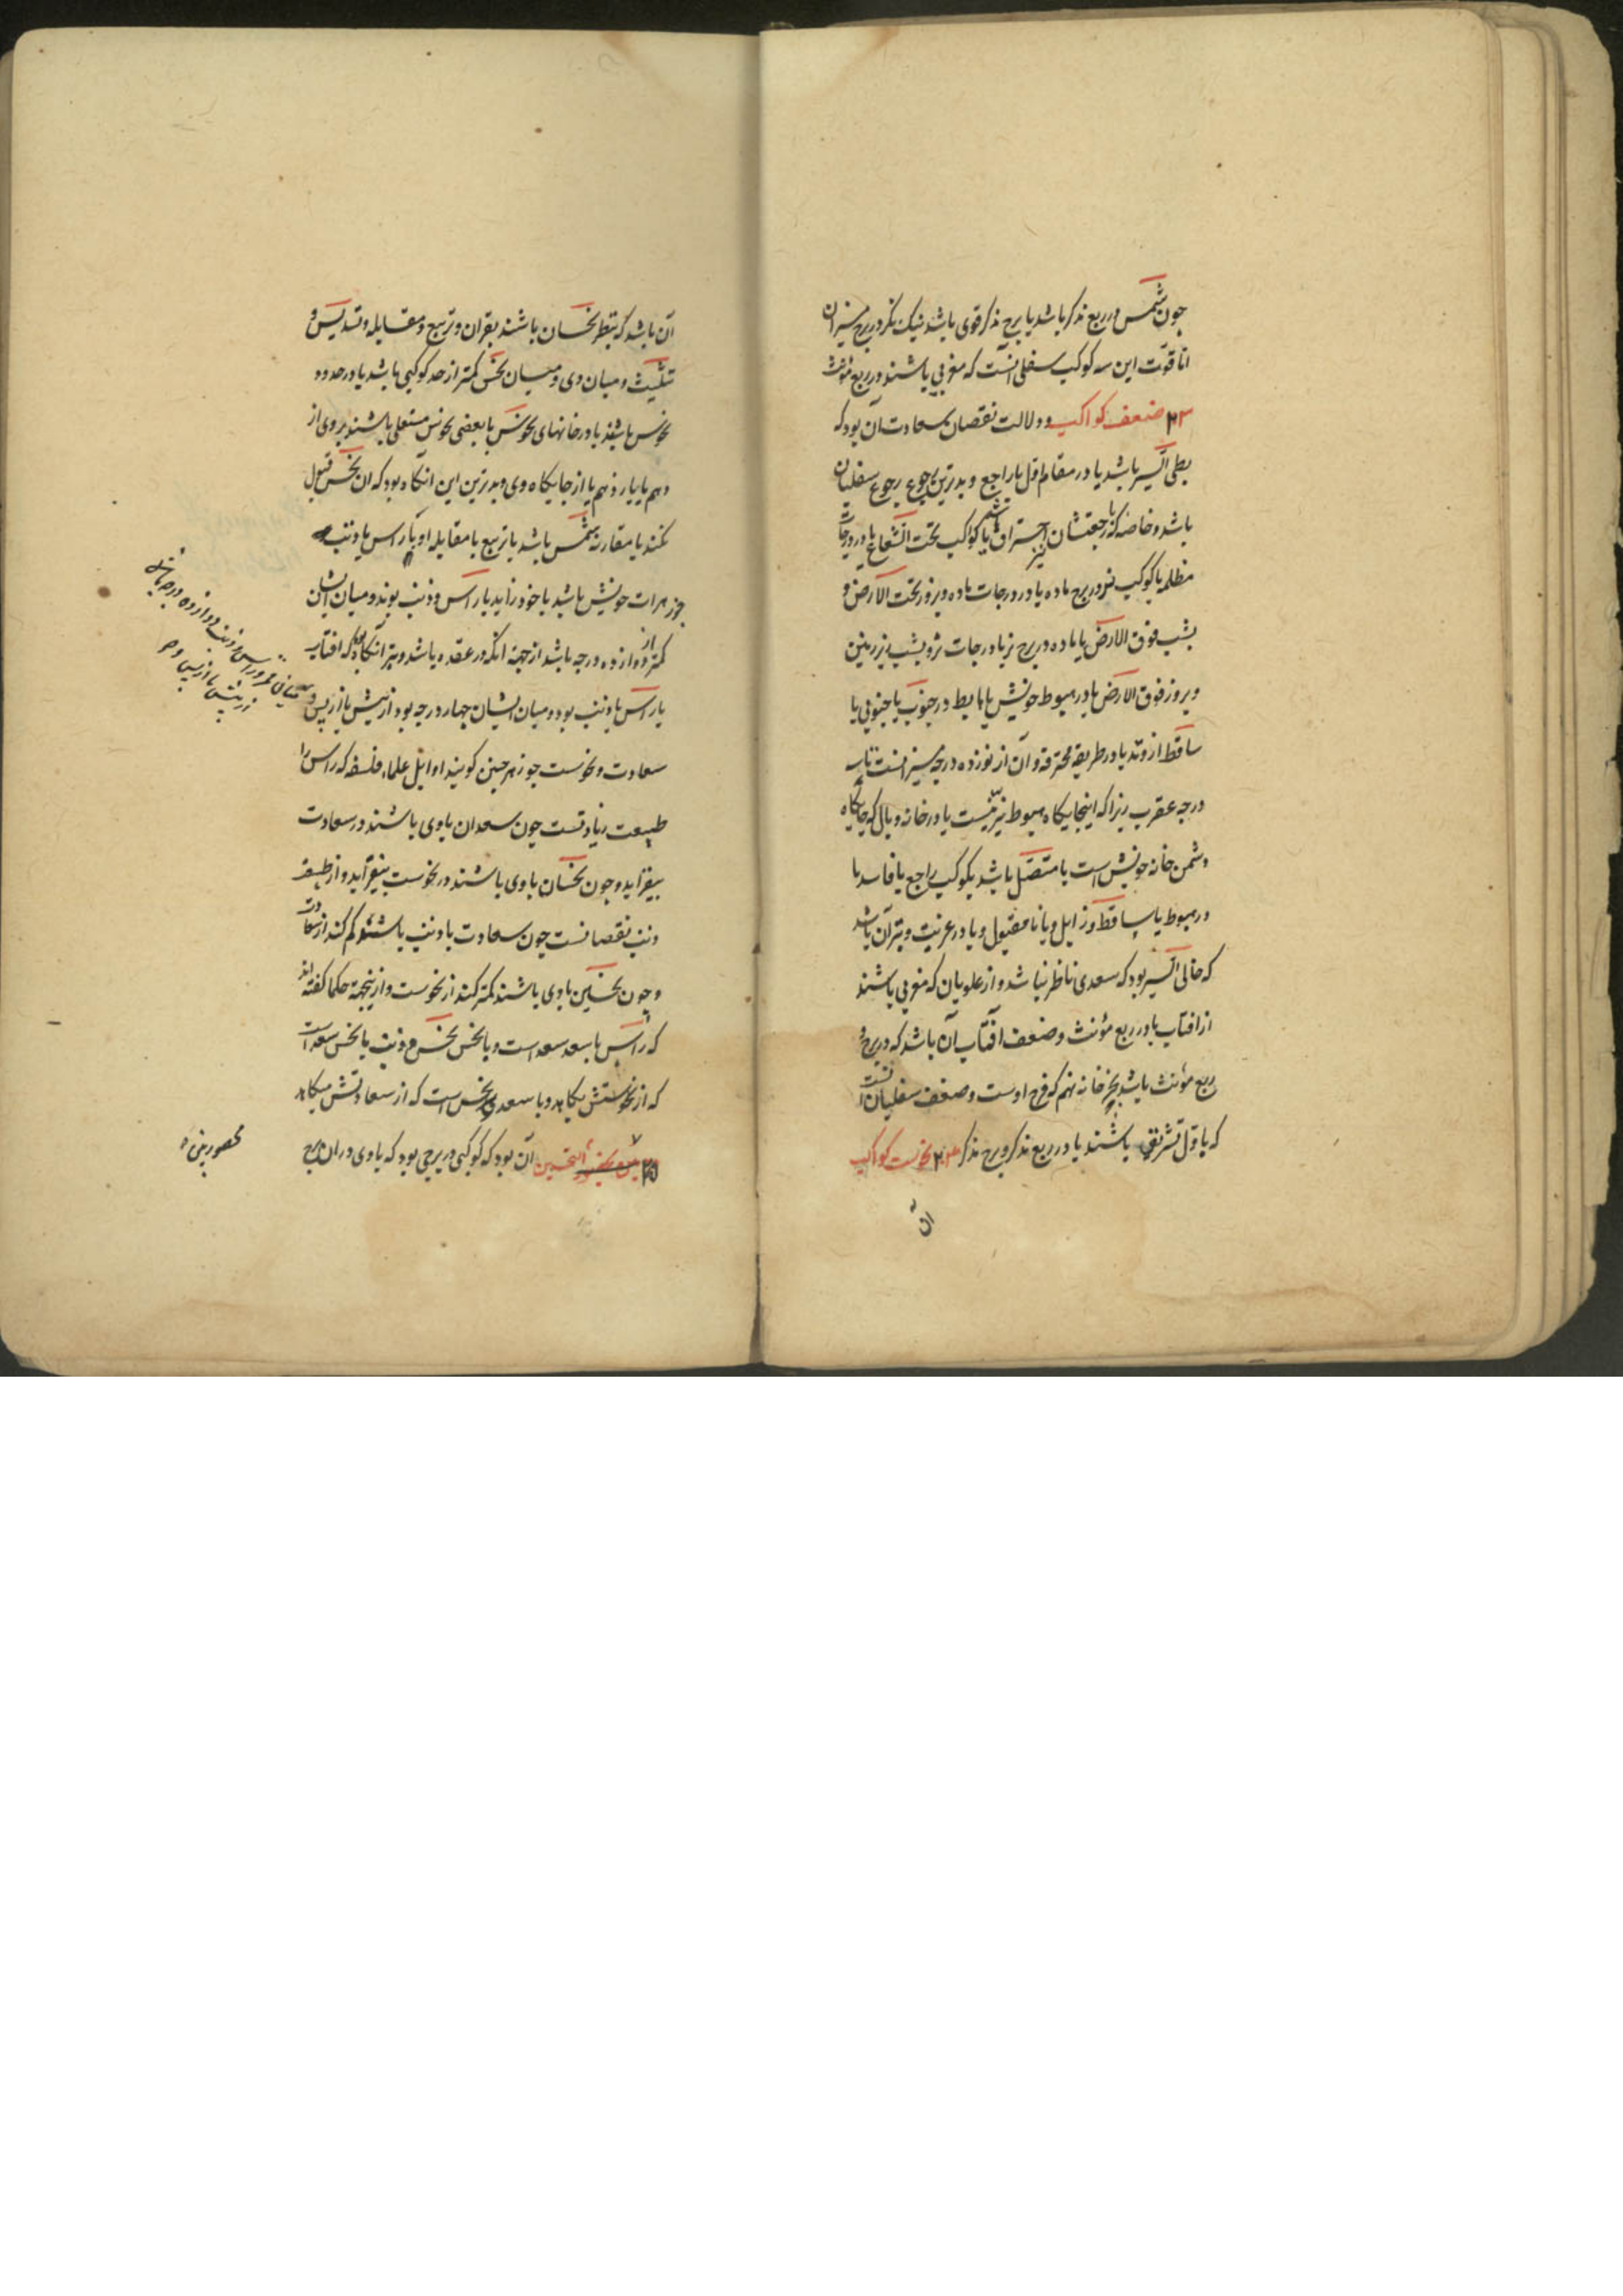 چون شمس در ربع مذکر باشد یا برج مذکر قوی باشد نیک مگر در برج میزان
اما قوت این سه کوکب سفلی آنست که مغربی باشند در ربع مؤنث
ضعف کواکب و دلالت نقصان سعادت آن بود که
بطی السیر باشد یا در مقام اول یا راجع و بدترین رجوع رجوع سفلیان
باشد و خاصه که با رجعتشان احتراق باشد یا کواکب تحت الشعاع یا در درجات
مظلمه یا کوکب نر در برج ماده یا در درجات ماده و بروز تحت الارض و
بشب فوق الارض یا ماده در برج نر یا درجات نر و بشب زیر زمین
و بروز فوق الارض یا در هبوط خویش یا هابط در جنوب یا جنوبی یا
ساقط از وتد یا در طریقه محترقه و آن از نوزده درجه میزانست تا سه
درجه عقرب زیرا که اینجایگاه هبوط نیرینست یا در خانه وبال که جایگاه
دشمن خانه خویش است یا متصل باشد بکوکب راجع یا فاسد یا
در هبوط یا ساقط و زایل و یا نامقبول و یا در غربت و بتر آن باشد
که خالی السیر بود که سعدی ناظر نباشد و از علویان که مغربی باشند
از افتاب یا در ربع مؤنث و ضعف آفتاب آن باشد که در برج و
ربع مؤنث باشد بجز خانه نهم که فرح اوست و ضعف سفلیان آنست
که باول تشریقی باشند یا در ربع مذکر و برج مذکر نحوست کواکب
آن
آن باشد که بنظر نحسان باشند بقران و تربیع و مقابله و تسدیس و
تثلیث و میان وی و میان نحس کمتر از حد کوکبی باشد یا در حدود
نحوس باشند یا در خانهای نحوس یا بعضی نحوس مستعلی باشند بروی از
دهم یا یازدهم یا از جایگاه وی و بدترین این آنگاه بود که آن نحس قبول
نکند یا مقارنه شمس باشد یا تربیع یا مقابله او یا راس یا ذنب
جوزهرات خویش باشد یا خود زاید با راس و ذنب بوند و میان ایشان
کمتر از دوازده درجه باشد از جهة آنکه در عقده باشد و بتر آنگاه بود که افتاب
با راس یا ذنب بود و میان ایشان چهار درجه بود از پیش یا از پس و
سعادت و نحوست جوزهر چنین کویند اوایل علماء فلسفه که راس را
طبیعت زیادتست چون سعدان با وی باشند در سعادت
بیفزاید و چون نحسان با وی باشند در نحوست بیفزاید و از طبیعت
ذنب نقصانست چون سعادت با ذنب باشند کم کند از سعادت
و چون نحسین با وی باشند کمتر کند از نحوست و ازینجهة حکما کفته اند
که راس با سعد سعد است و با نحس نحس و ذنب با نحس سعد است
که از نحوستش بکاهد و با سعد نحس است که از سعادتش میکاهد
۲۵ بین النحسین آن بود که کوکبی در برجی بود که با وی در آن برج
محصور بین